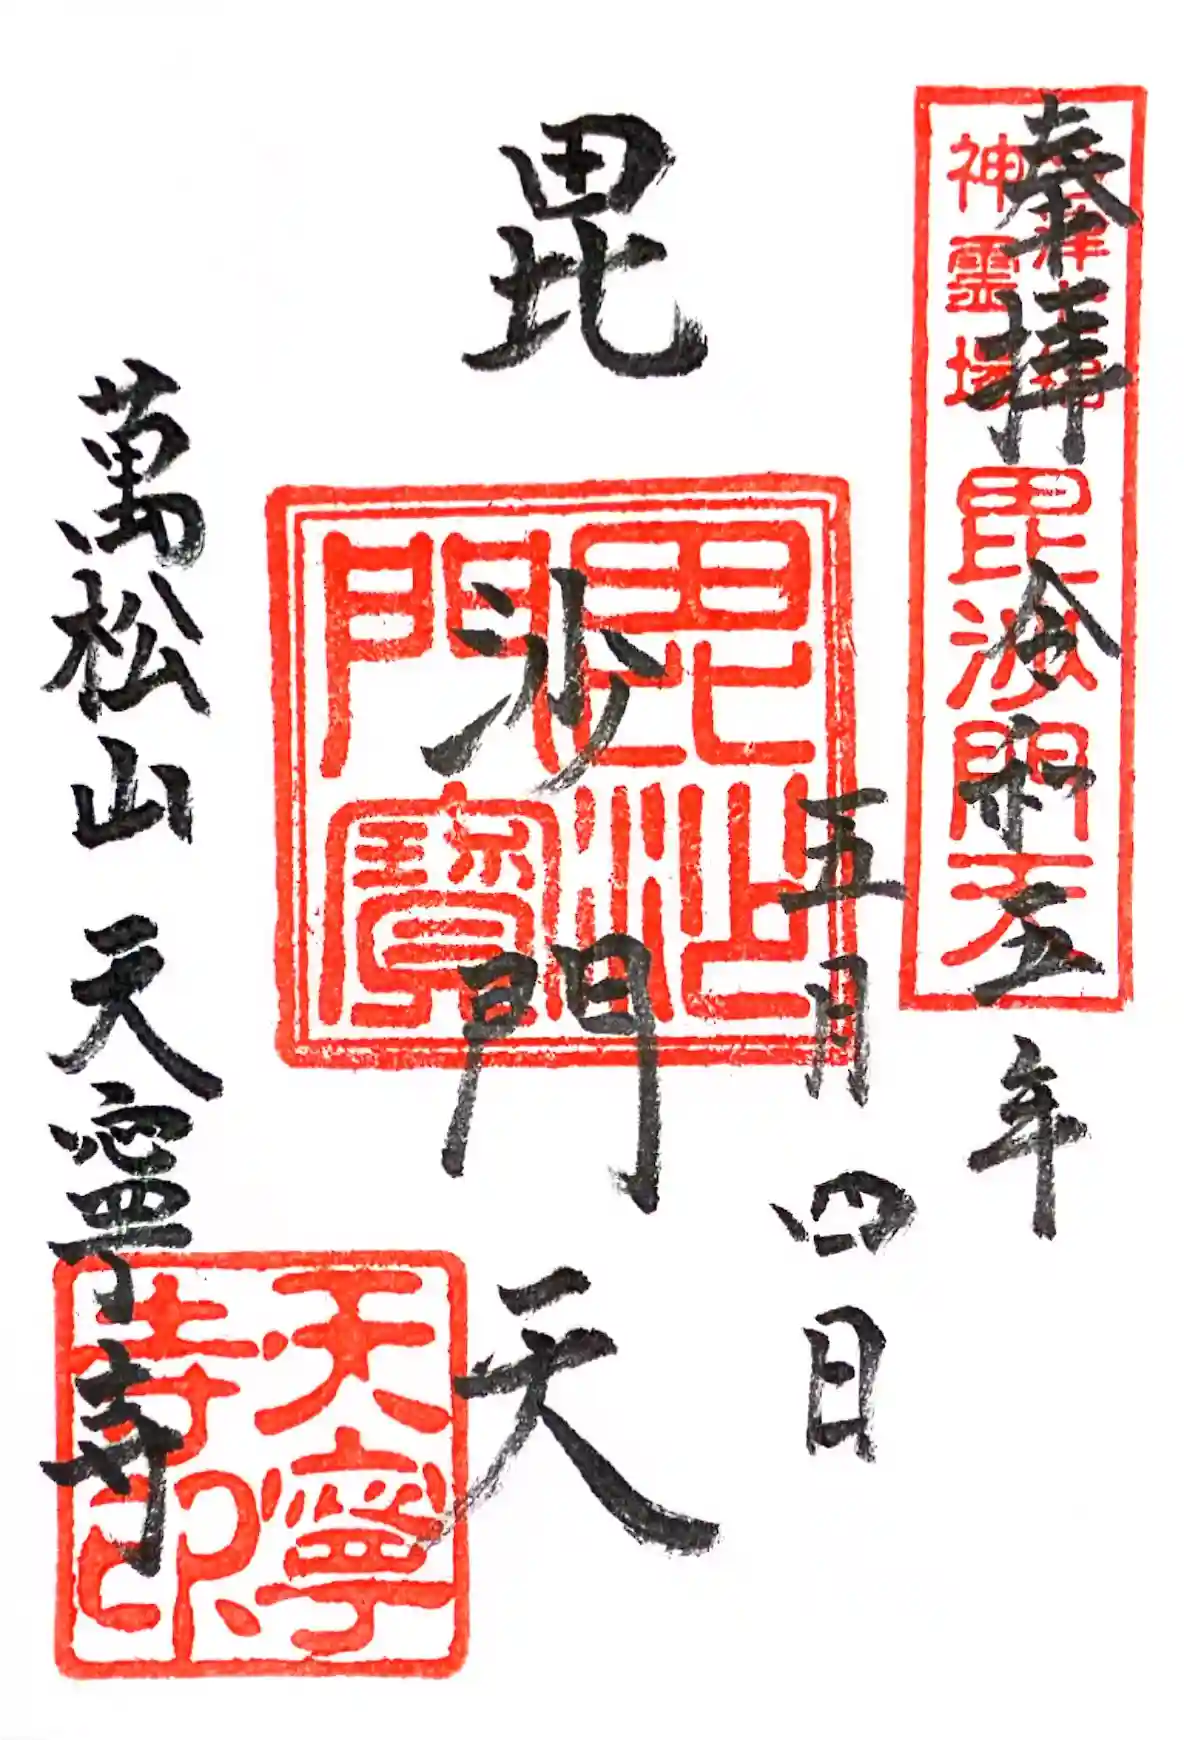 奉拝 令和五年
五月四日
毘沙門天
萬松山 天寧寺
神霊場
毘沙門天
毘沙
門寶
天寧
寺印